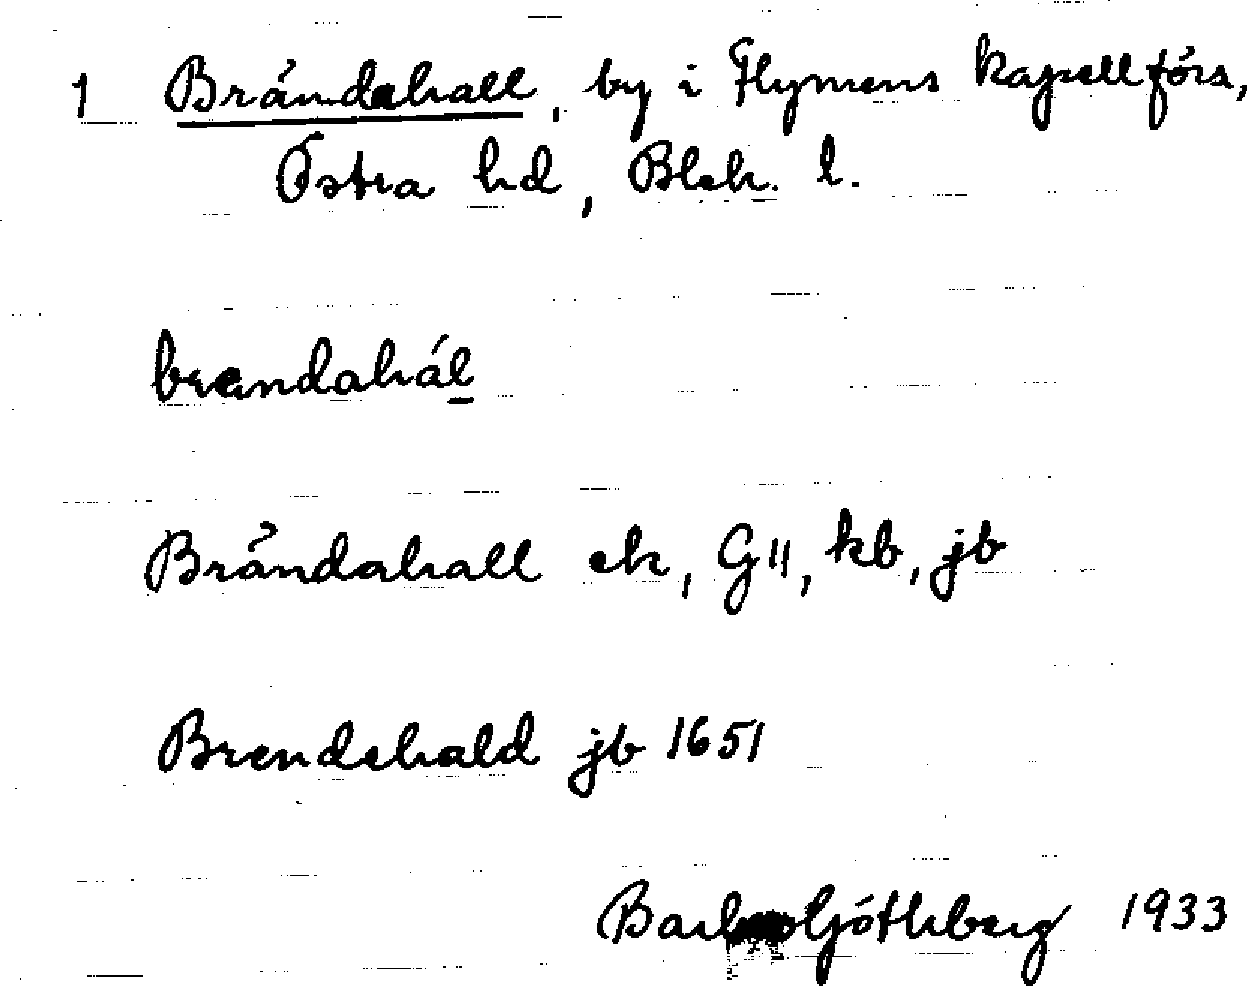 1 Brändahall, by i Flymens kapellförs,
Östra hd, Blek. l.
brandahál
Brändahall ek, G11, kb, jb
Brendehald jb 1651
Göthberg 1933